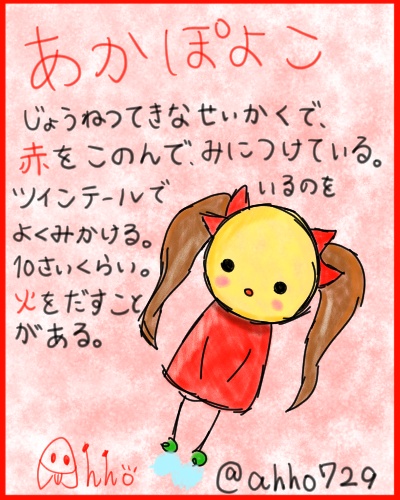 あかぽよこ
じょうねつてきなせいかくで、
赤をこのんで、みにつけている。
ツインテールでいるのを
よくみかける。
10さいくらい。
火をだすこと
がある。
Ahho
@ahho729